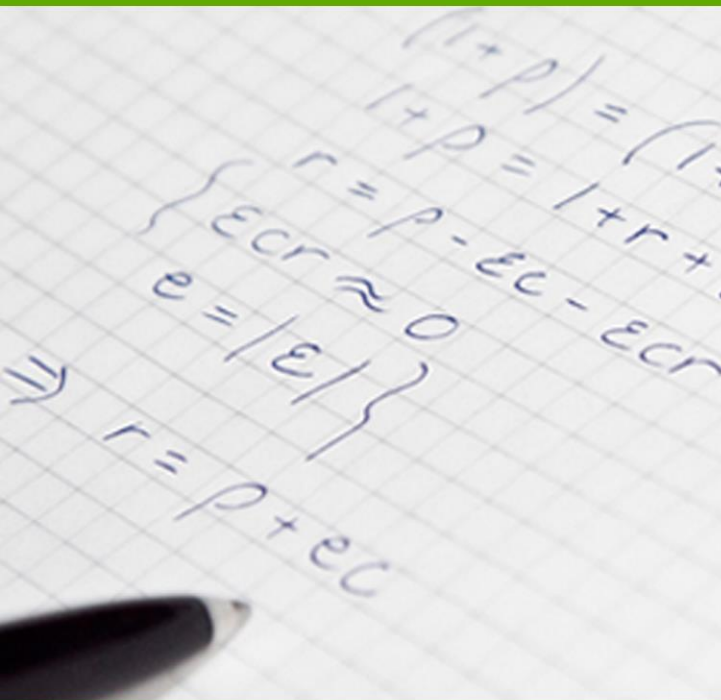 (1+p) = (1+
1+p = 1+r+
r = p - εc - εcr
{ εcr ≈ 0
e = |ε| }
⇒ r = p + ec